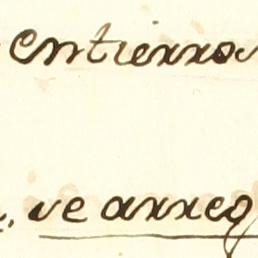 entierros
, se arreg